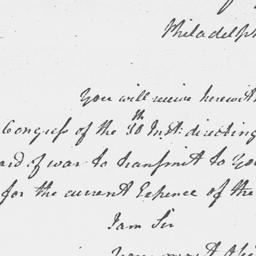 Philadelph
You will receive herewith
Congress of the 10th Inst: directing
ard of war to transmit to You
for the current Expence of the
I am Sir